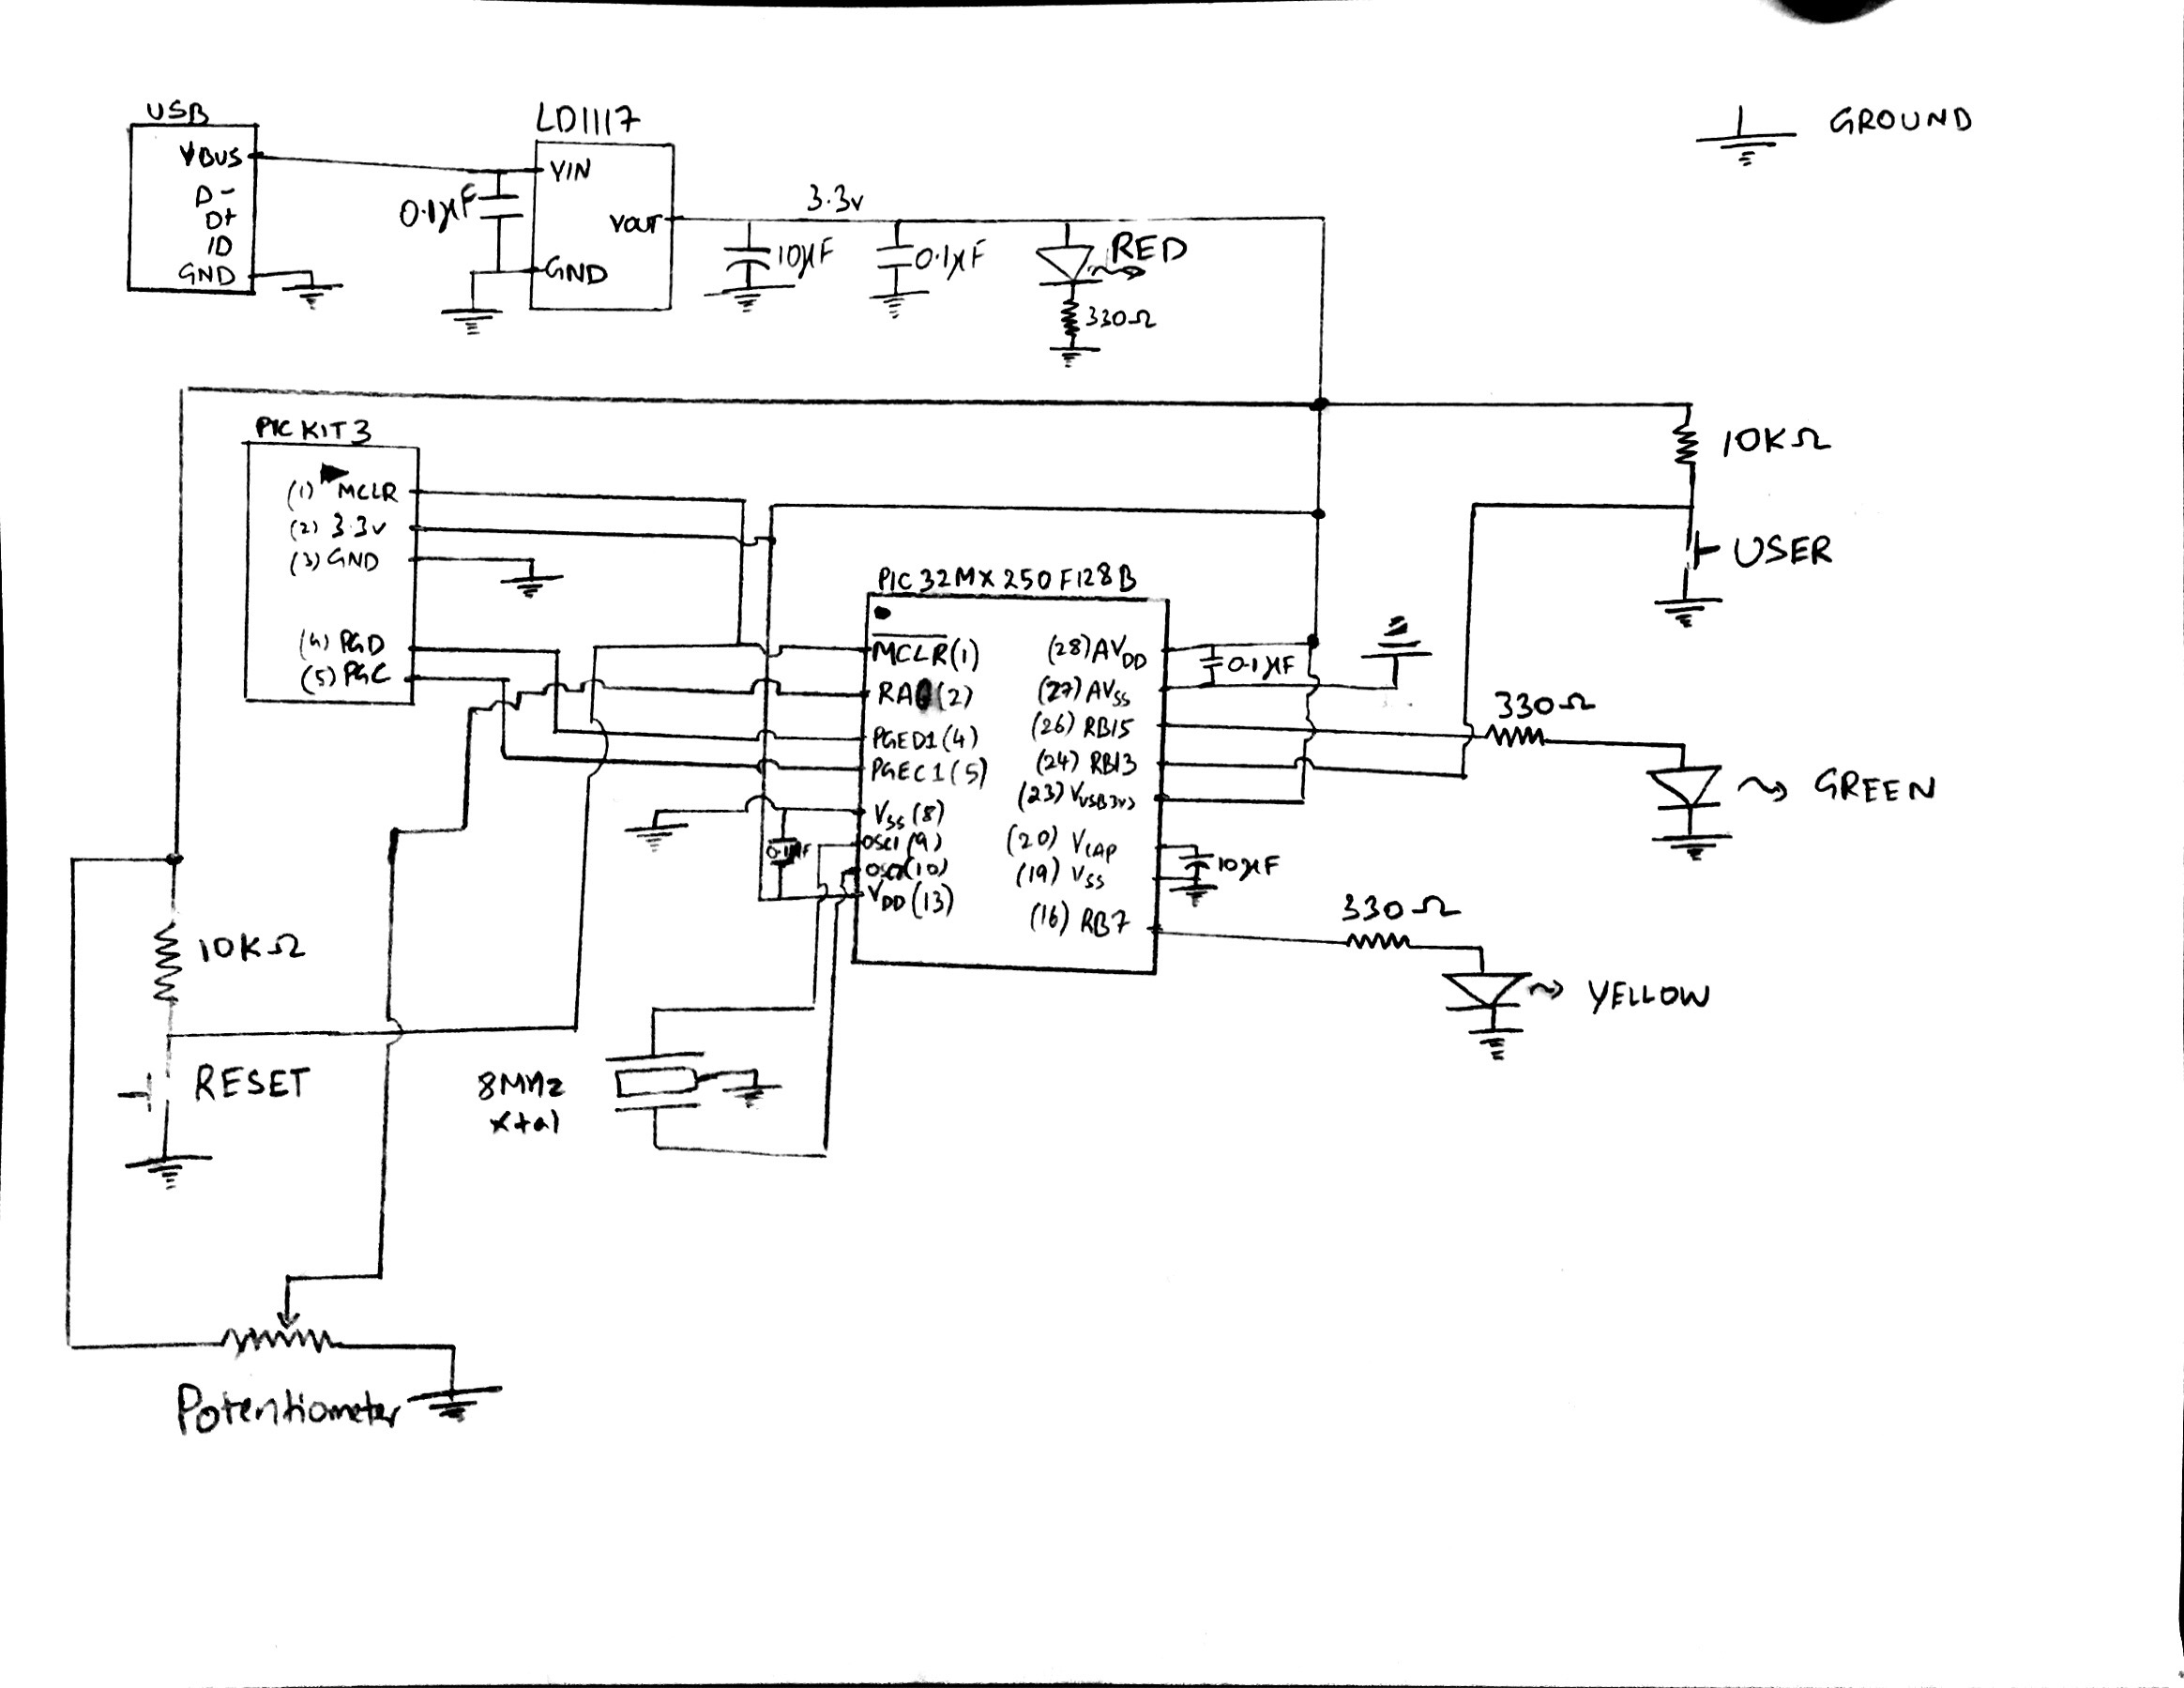 USB
VBUS
D-
D+
ID
GND
LD1117
VIN
VOUT
GND
0.1µF
3.3v
10µF
0.1µF
RED
330Ω
GROUND
PIC KIT 3
(1) MCLR
(2) 3.3v
(3) GND
(4) PGD
(5) PGC
10KΩ
USER
PIC 32MX 250 F128B
MCLR(1)
RA0(2)
PGED1(4)
PGEC1(5)
VSS(8)
OSC1(9)
(10)
VDD(13)
(28)AVDD
(27)AVSS
(26) RB15
(24) RB13
(23) VUSB3V3
(20) VCAP
(19) VSS
(16) RB7
0.1µF
0.1µF
10µF
330Ω
GREEN
330Ω
YELLOW
10KΩ
RESET
8MHz
xtal
Potentiometer